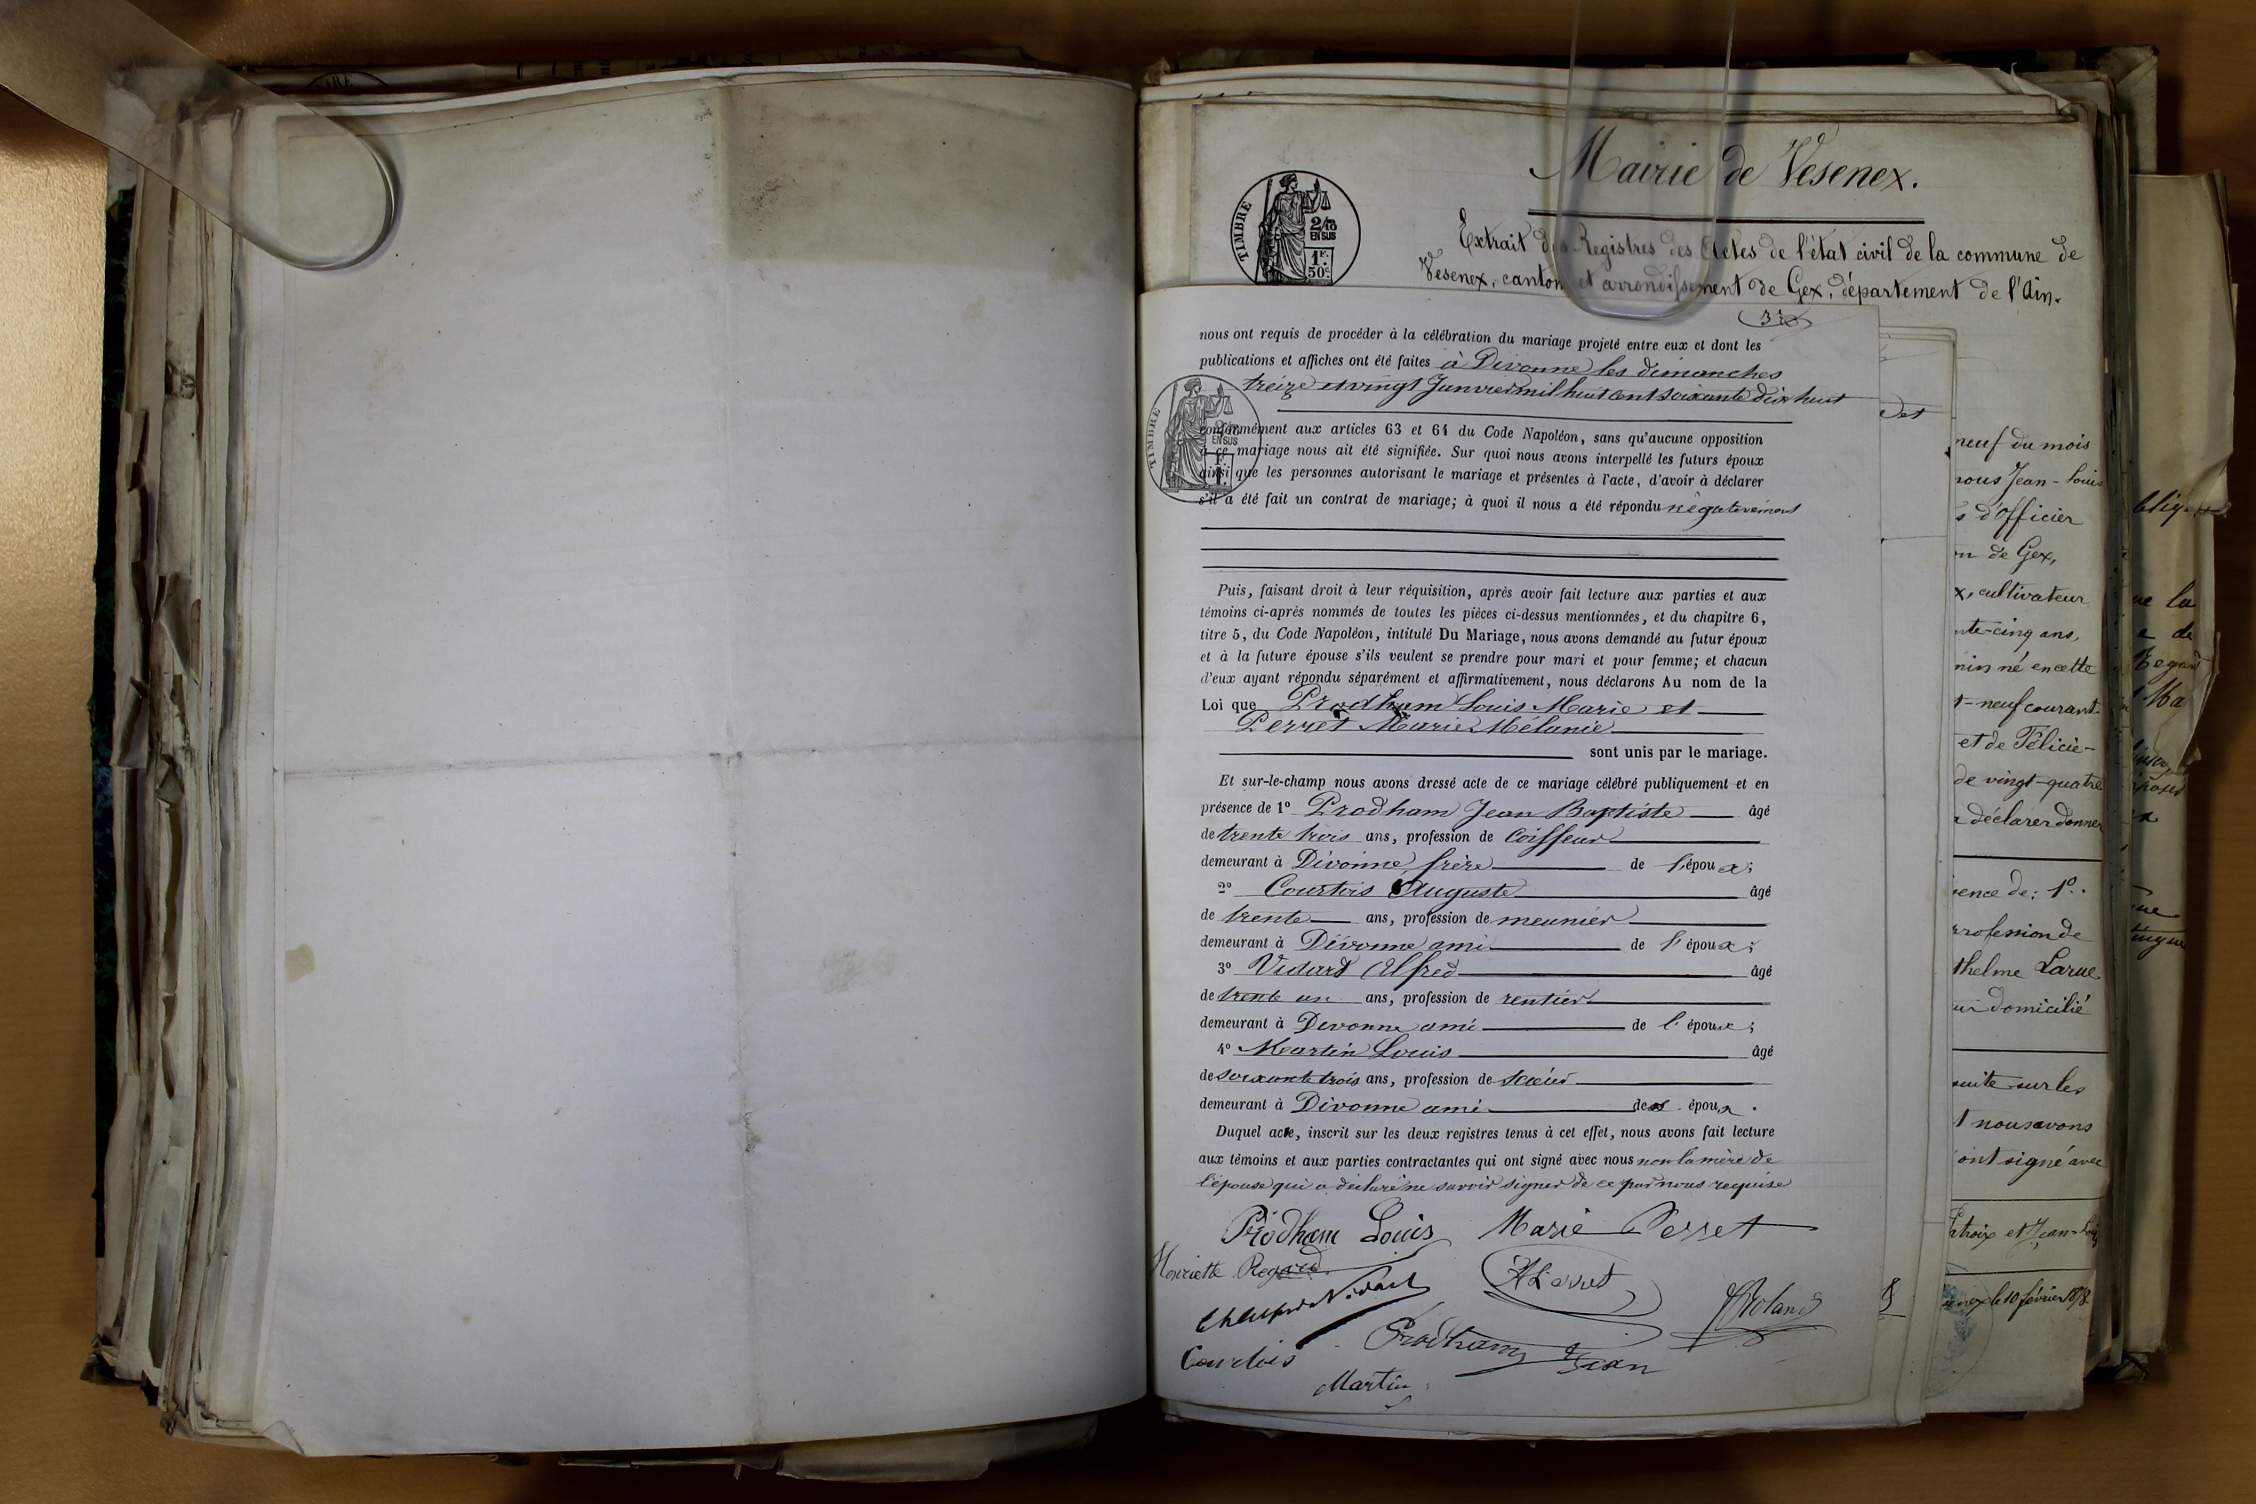 Mairie de Vesenex.
Extrait des Registres des Actes de l'état civil de la commune de
Vesenex, canton et arrondissement de Gex, département de l'Ain.
TIMBRE
2/10
EN SUS
1F.
50c
nous ont requis de procéder à la célébration du mariage projeté entre eux et dont les
publications et affiches ont été faites à Divonne les dimanches
treize et vingt Janvier mil huit cent soixante dix huit
TIMBRE
EN SUS
conformément aux articles 63 et 64 du Code Napoléon, sans qu'aucune opposition
à ce mariage nous ait été signifiée. Sur quoi nous avons interpellé les futurs époux
ainsi que les personnes autorisant le mariage et présentes à l'acte, d'avoir à déclarer
s'il a été fait un contrat de mariage; à quoi il nous a été répondu négativement
Puis, faisant droit à leur réquisition, après avoir fait lecture aux parties et aux
témoins ci-après nommés de toutes les pièces ci-dessus mentionnées, et du chapitre 6,
titre 5, du Code Napoléon, intitulé Du Mariage, nous avons demandé au futur époux
et à la future épouse s'ils veulent se prendre pour mari et pour femme; et chacun
d'eux ayant répondu séparément et affirmativement, nous déclarons Au nom de la
Loi que Prodham Louis Marie et
Perret Marie Mélanie
sont unis par le mariage.
Et sur-le-champ nous avons dressé acte de ce mariage célébré publiquement et en
présence de 1º Prodham Jean Baptiste âgé
de trente trois ans, profession de Coiffeur
demeurant à Divonne, frère de l'époux;
2º Courtois Auguste âgé
de trente ans, profession de meunier
demeurant à Divonne ami de l'époux;
3º Vidard Alfred âgé
de trente un ans, profession de rentier
demeurant à Divonne ami de l'époux;
4º Martin Louis âgé
de soixante trois ans, profession de scieur
demeurant à Divonne ami de époux.
Duquel acte, inscrit sur les deux registres tenus à cet effet, nous avons fait lecture
aux témoins et aux parties contractantes qui ont signé avec nous non la mère de
l'épouse qui a déclaré ne savoir signer de ce par nous requise
Prodham Louis Marie Perret
Henriette Regard
Vidard
Roland
Prodham Jean
Courtois
Martin
et
neuf du mois
nous Jean-Louis
d'officier
de Gex,
x, cultivateur
nte-cinq ans,
né en cette
t-neuf courant
et de Félicie-
de vingt-quatre
déclarer donner
ence de: 1º.
profession de
thelme Larue
domicilié
suite sur les
t nous avons
ont signé avec
troix et Jean-Louis
enex le 10 février 1878
la
de
Regard
Ma